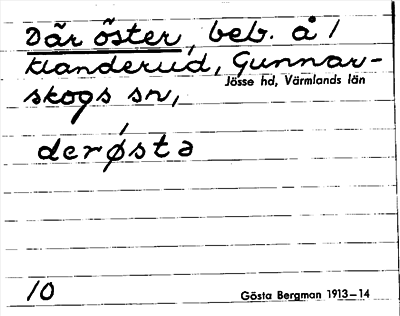 Där öster, beb. å 1/
Klanderud, Gunnar-
skogs sn,
Jösse hd, Värmlands län
derǿsta
10
Gösta Bergman 1913–14